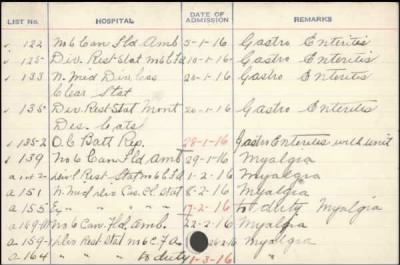 LIST No. HOSPITAL DATE OF ADMISSION REMARKS
122 No 6 Can. Fld. Amb 5-1-16 Gastro Enteritis
125 Div. Rest Stat No 6 C Fd 10-1-16 Gastro Enteritis
133 N. Mid Div Cas 20-1-16 Gastro Enteritis
Clear Stat
135 Div. Rest Stat Mont 20-1-16 Gastro Enteritis
Des. Cats
135-2 O.C. Batt Rep. 28-1-16 Gastro Enteritis with unit
139 No 6 Can. Fld. Amb 29-1-16 Myalgia
a 142 Div'l Rest. Stat No 6 C Fd 1-2-16 Myalgia
a 151 N. Mid Div Cas. Cl. Stat 8-2-16 Myalgia
a 155 17-2-16 to duty Myalgia
a 159 No 6 Can. Fld. Amb. 22-2-16 Myalgia
a 159 Div Rest Stat No 6 C. F. A. -2-16 Myalgia
a 164 to duty 1-3-16 "